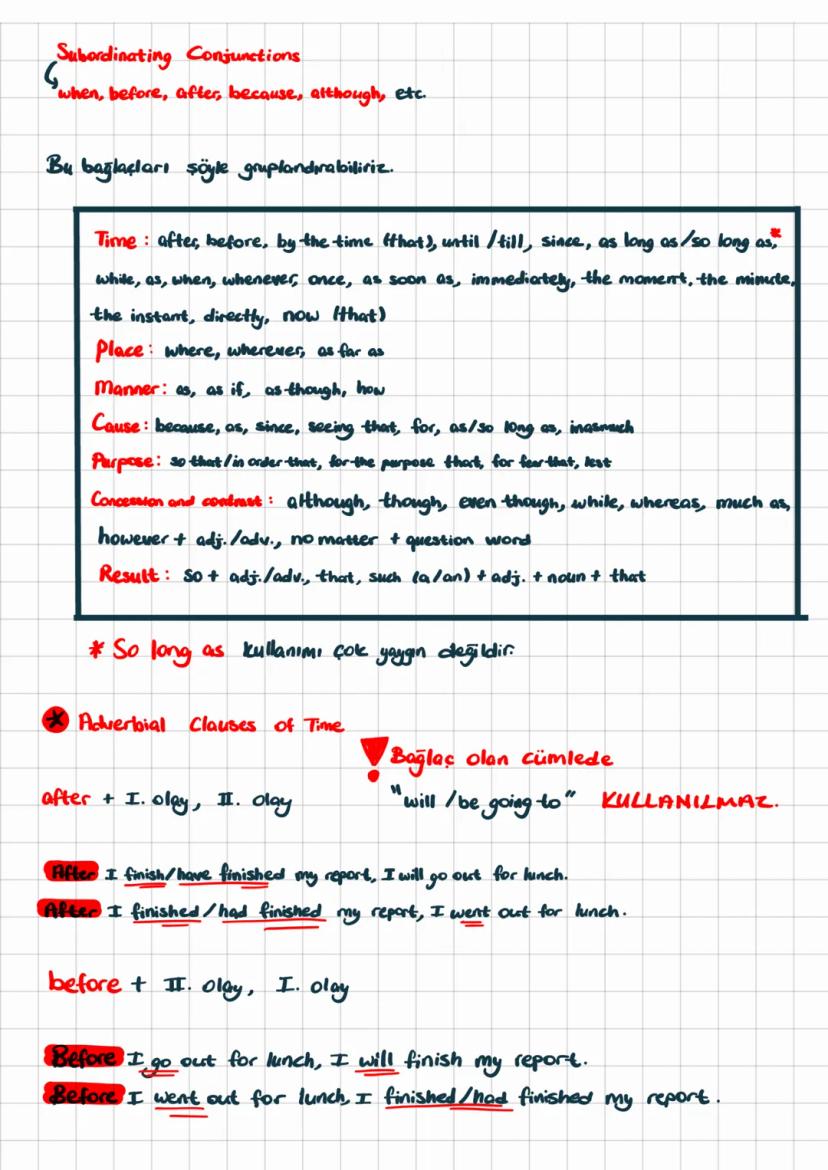 Subordinating Conjunctions
when, before, after, because, although, etc.
Bu bağlaçları şöyle gruplandırabiliriz.
Time : after, before, by the time (that), until /till, since, as long as/so long as,*
while, as, when, whenever, once, as soon as, immediately, the moment, the minute,
the instant, directly, now (that)
Place : where, wherever, as far as
Manner : as, as if, as though, how
Cause : because, as, since, seeing that, for, as/so long as, inasmuch
Purpose : so that/in order that, for the purpose that, for fear that, lest
Concession and contrast : although, though, even though, while, whereas, much as,
however + adj./adv., no matter + question word
Result : so + adj./adv., that, such (a/an) + adj. + noun + that
* So long as kullanımı çok yaygın değildir.
* Adverbial Clauses of Time
! Bağlaç olan cümlede
after + I. olay, II. olay "will /be going to" KULLANILMAZ.
After I finish/have finished my report, I will go out for lunch.
After I finished/had finished my report, I went out for lunch.
before + II. olay, I. olay
Before I go out for lunch, I will finish my report.
Before I went out for lunch, I finished/had finished my report.